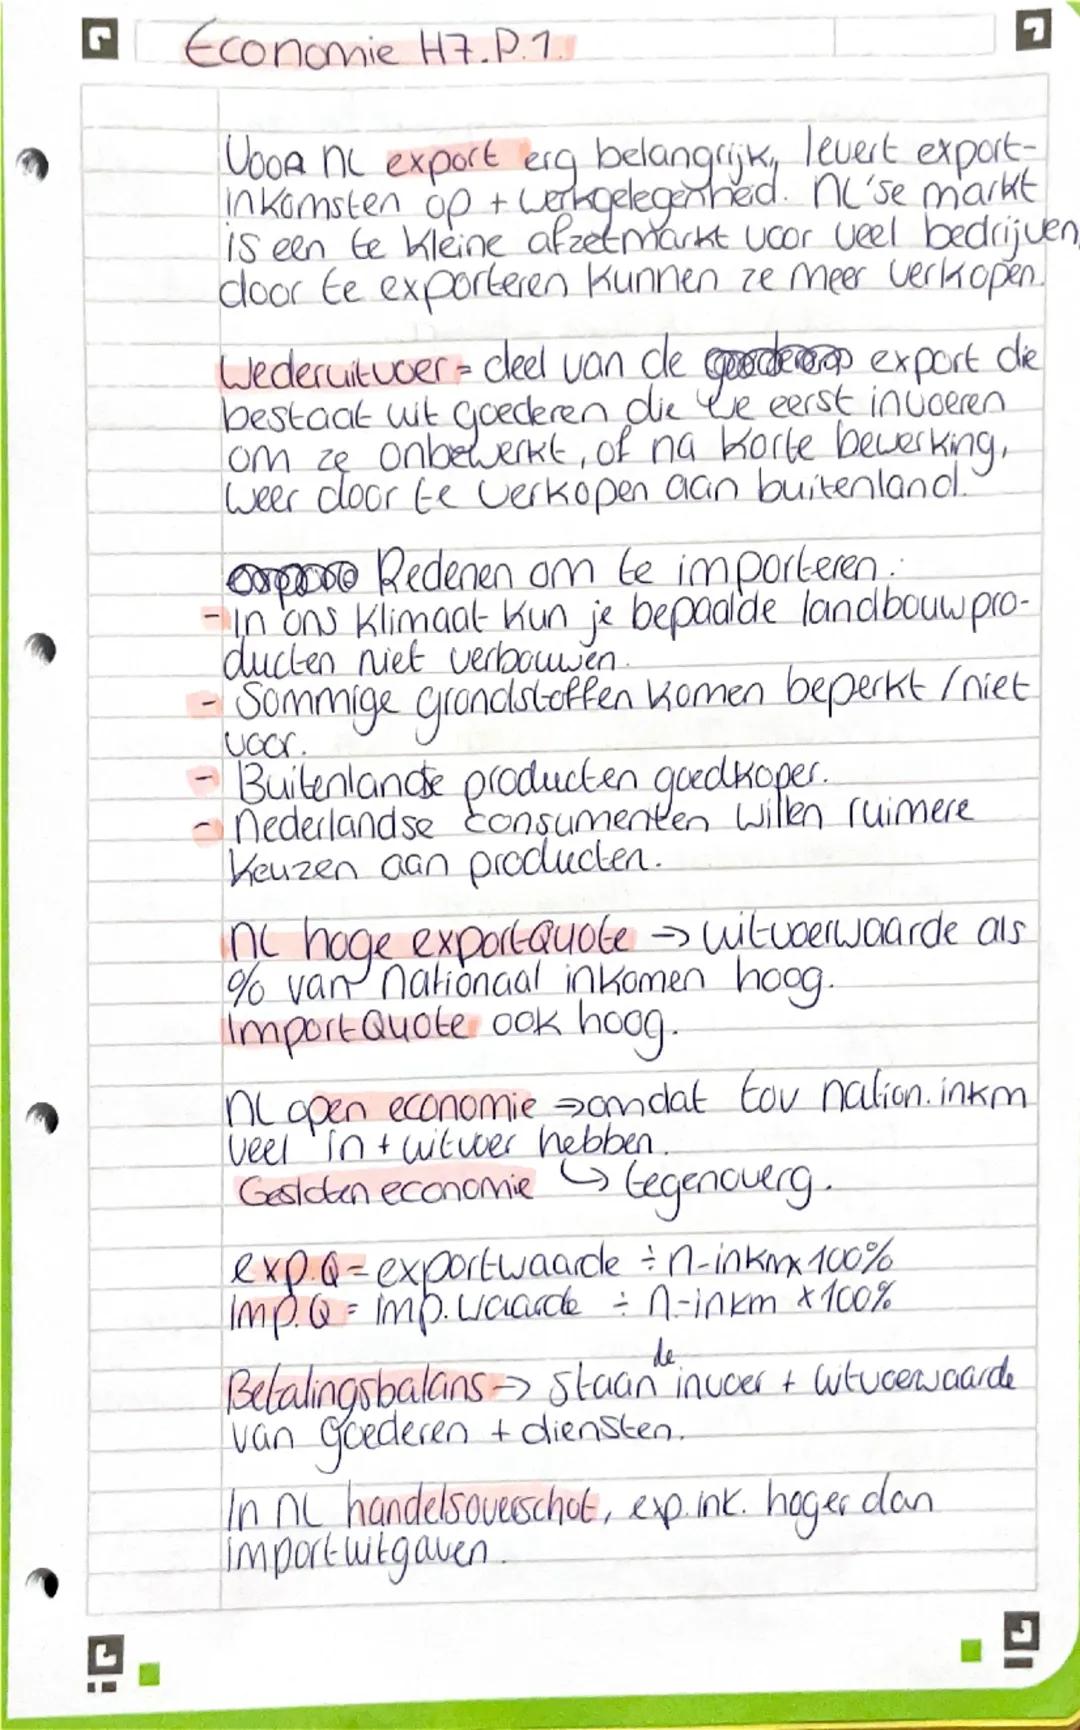 Economie H7.P.1.
Voor NL export erg belangrijk, levert export-
inkomsten op + werkgelegenheid. NL'se markt
is een te kleine afzetmarkt voor veel bedrijven,
door te exporteren kunnen ze meer verkopen.
Wederuitvoer = deel van de export die
bestaat uit goederen die we eerst invoeren
om ze onbewerkt, of na korte bewerking,
weer door te verkopen aan buitenland.
Redenen om te importeren:
- In ons klimaat kun je bepaalde landbouwpro-
ducten niet verbouwen.
- Sommige grondstoffen komen beperkt / niet
voor.
- Buitenlandse producten goedkoper.
- Nederlandse consumenten willen ruimere
keuzen aan producten.
NL hoge exportQuote → uitvoerwaarde als
% van nationaal inkomen hoog.
ImportQuote ook hoog.
NL open economie → omdat tov nation. inkm
veel in + uitvoer hebben.
Gesloten economie ↳ tegenoverg.
exp.Q = exportwaarde ÷ n-inkm x 100%
imp.Q = imp. waarde ÷ n-inkm x 100%
Betalingsbalans → staan de invoer + uitvoerwaarde
van goederen + diensten.
In NL handelsoverschot, exp. ink. hoger dan
importuitgaven.